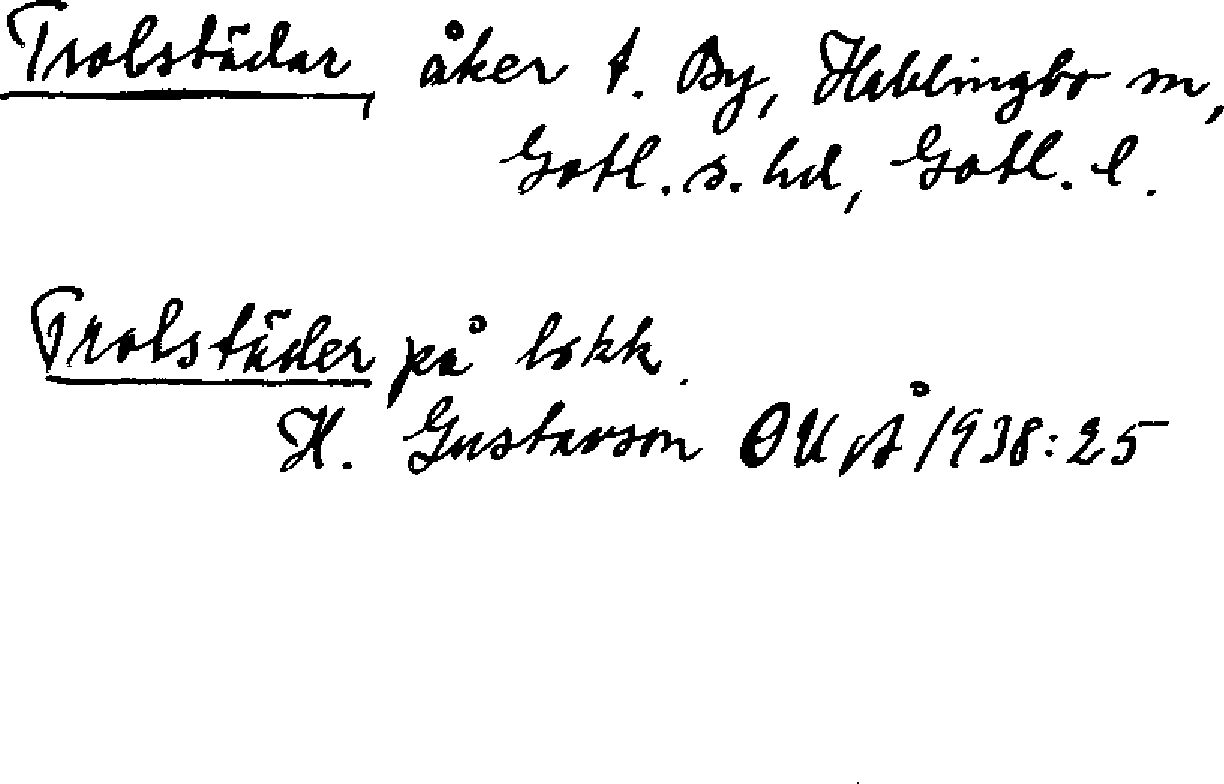 Trolstädar, åker t. By, Hablingbo sn,
Gotl. s. hd, Gotl. l.
Trolstäder på lskk.
H. Gustavson OUÅ 1938:25